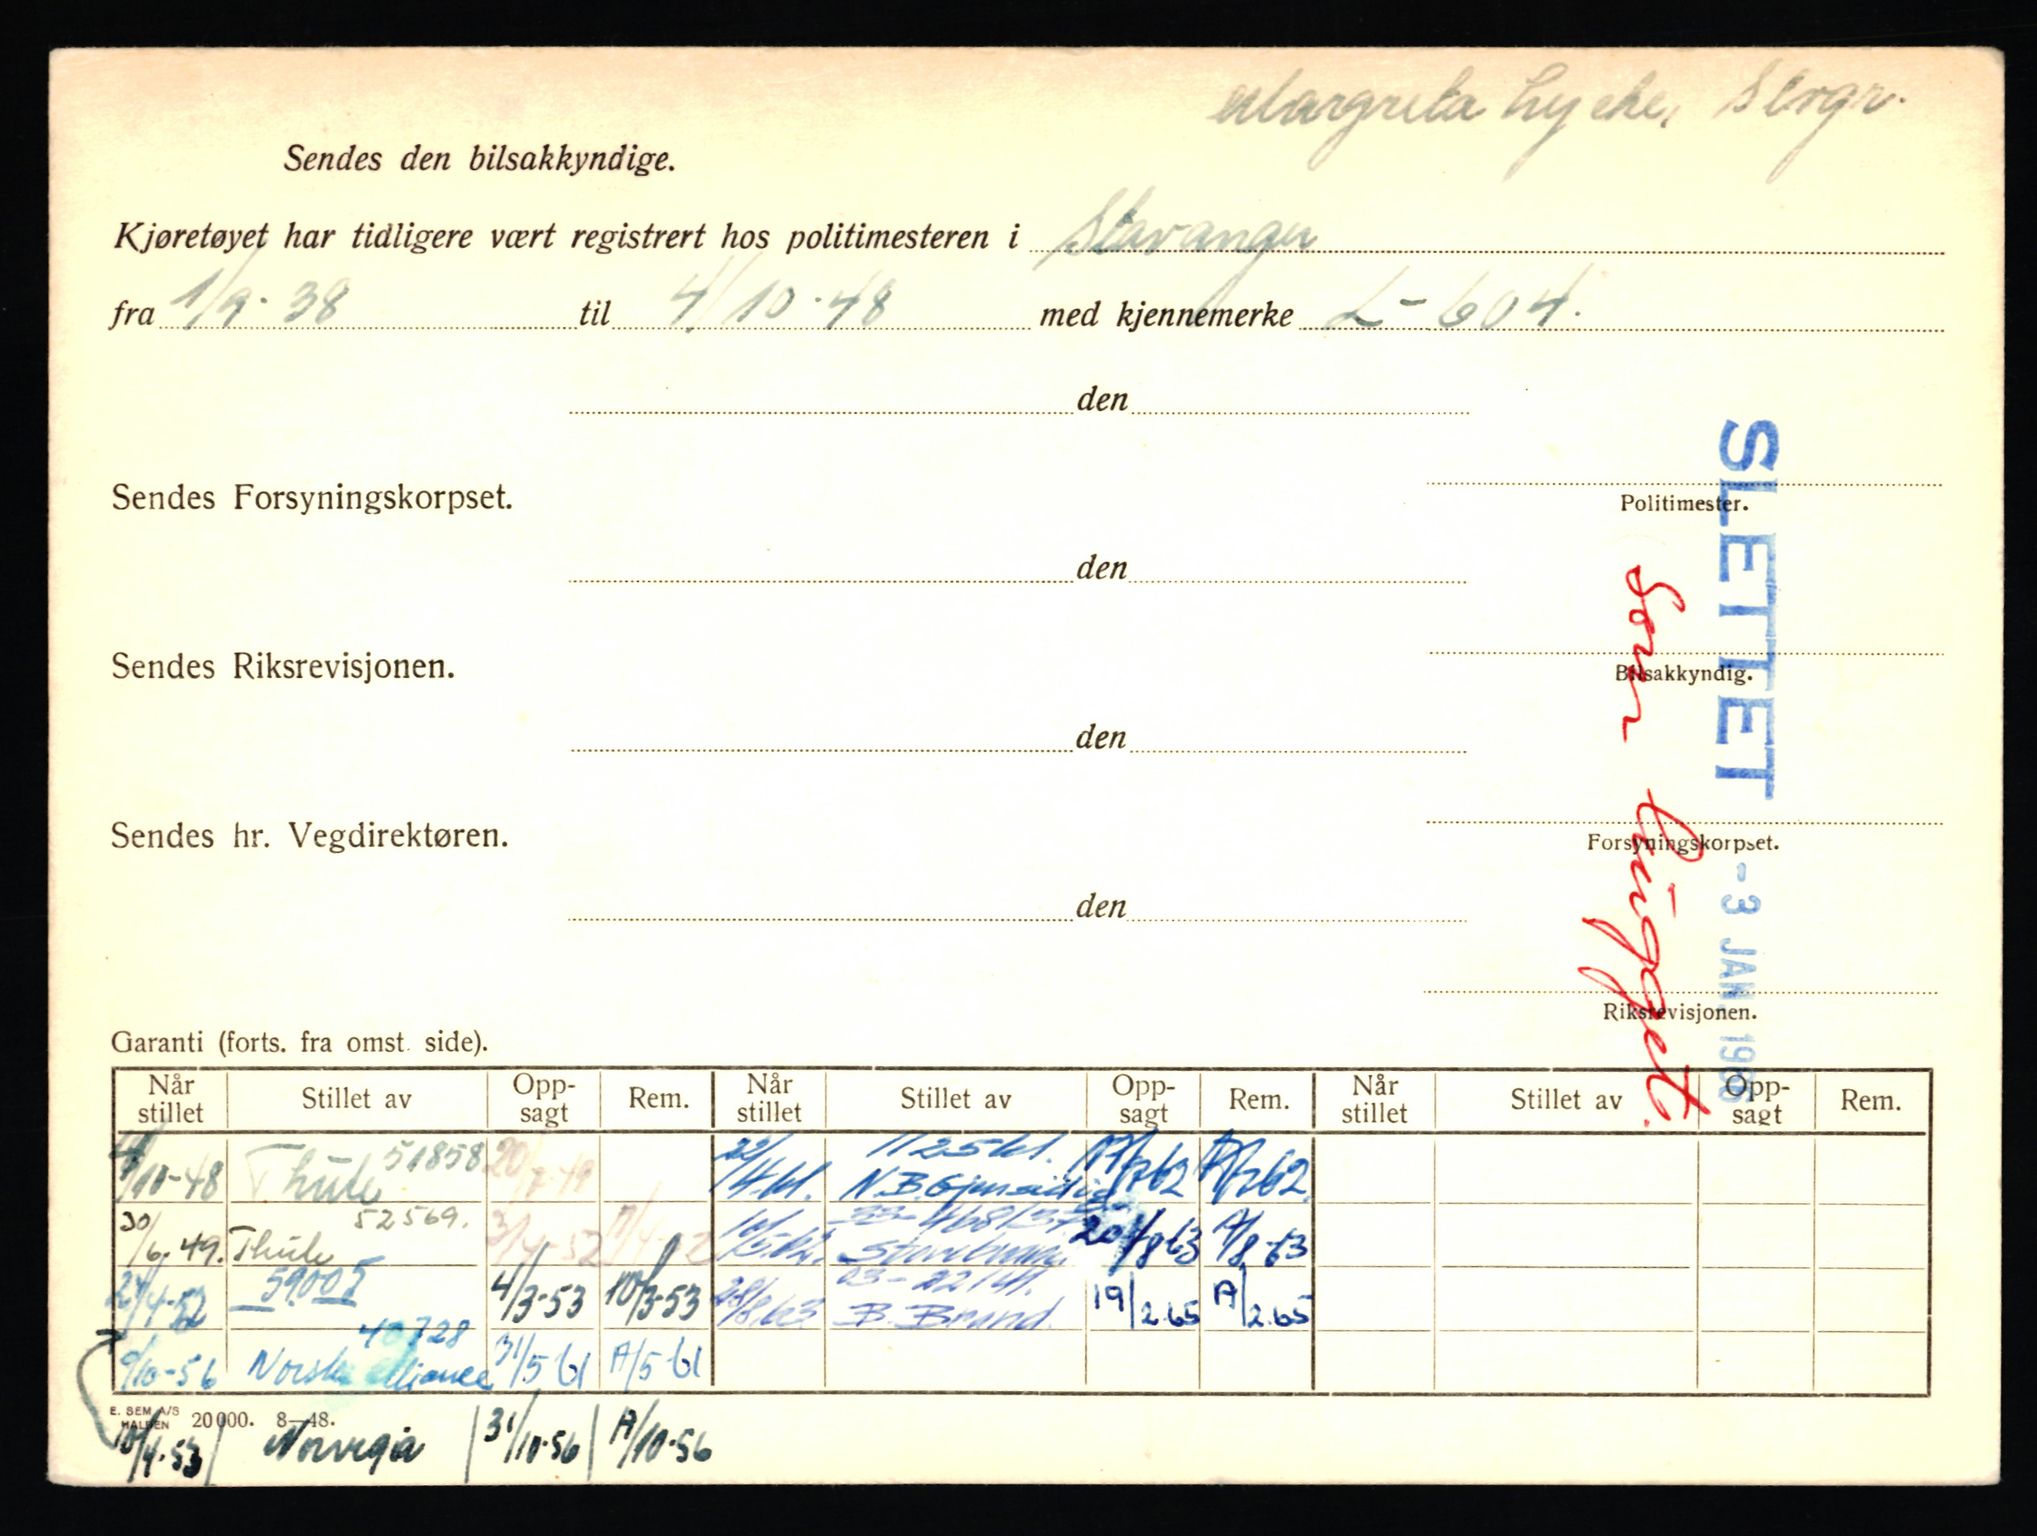 Margreta Lycke, Stvgr.
Sendes den bilsakkyndige.
Kjøretøyet har tidligere vært registrert hos politimesteren i Stavanger
fra 1/9-38 til 4/10-48 med kjennemerke L-604.
den
Politimester.
Sendes Forsyningskorpset.
den
Bilsakkyndig.
Sendes Riksrevisjonen.
den
Forsyningskorpset.
Sendes hr. Vegdirektøren.
den
Riksrevisjonen.
SLETTET -3 JAN. 196
som hugget.
Garanti (forts. fra omst. side).
Når stillet Stillet av Opp-sagt Rem. Når stillet Stillet av Opp-sagt Rem. Når stillet Stillet av Opp-sagt Rem.
4/10-48 Thule 51858 20/7-49
30/6.49. Thule 52569. 3/4-52
59005 4/3-53 10/3-53
9/10-56 Norske Alliance 40728 31/5 61 A/5 61
10/4-53 Norvegia 31/10-56 A/10-56
N.B. Gjensidig 17/7 62 A/7 62.
20/8 63 A/8-63
B. Brand. 19/2.65 A/2.65
E. SEM A/S HALDEN 20000. 8—48.